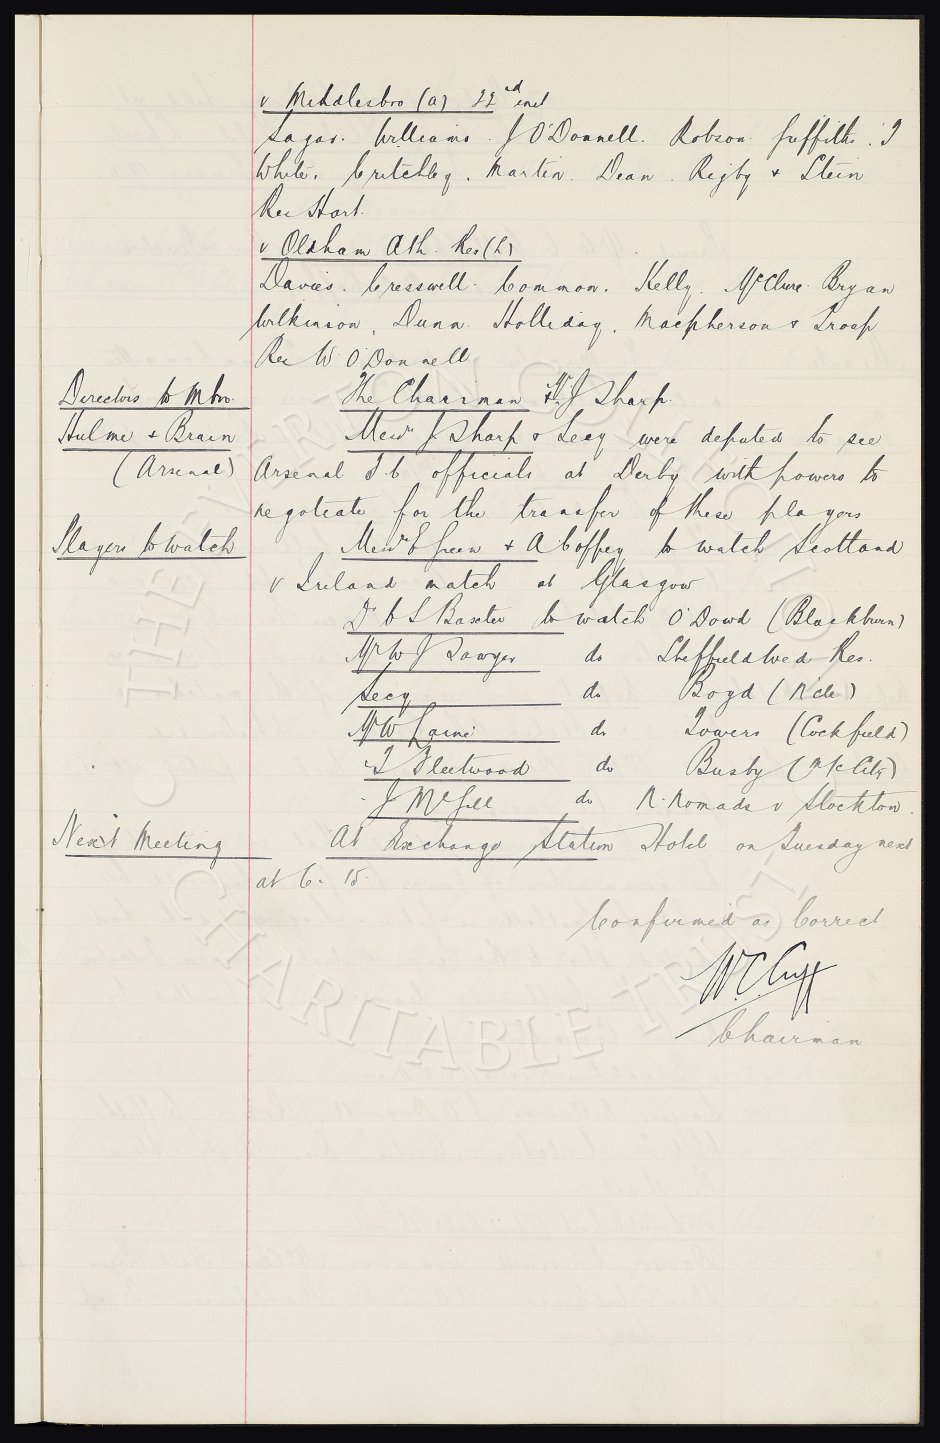 v Middlesbro (a) 22nd inst
Sagar. Williams. J O'Donnell. Robson. Griffiths. T
White. Critchley. Martin. Dean. Rigby & Stein
Res Hart.
v Oldham Ath. Res (h)
Davies. Cresswell. Common. Kelly. McClure. Bryan
Wilkinson. Dunn. Holliday. Macpherson & Troup
Res W. O'Donnell
Directors to Mbro. The Chairman & Mr J Sharp.
Hulme & Brain Messrs J Sharp & Secy were deputed to see
(Arsenal) Arsenal F C officials at Derby with powers to
negotiate for the transfer of these players
Players to watch Messrs E Green & A Coffey to watch Scotland
v Ireland match at Glasgow
Dr C S Baxter to watch O'Dowd (Blackburn)
Mr W J Sawyer do Sheffield Wed Res.
Secy do Boyd (N'cle)
Mr W do Towers (Cockfield)
T Fleetwood do Busby (M/c City)
J McGill do N. Nomads v Stockton.
Next Meeting At Exchange Station Hotel on Tuesday next
at 6. 15.
Confirmed as Correct
W.C. Cuff
Chairman
THE EVERTON COLLECTION
CHARITABLE TRUST